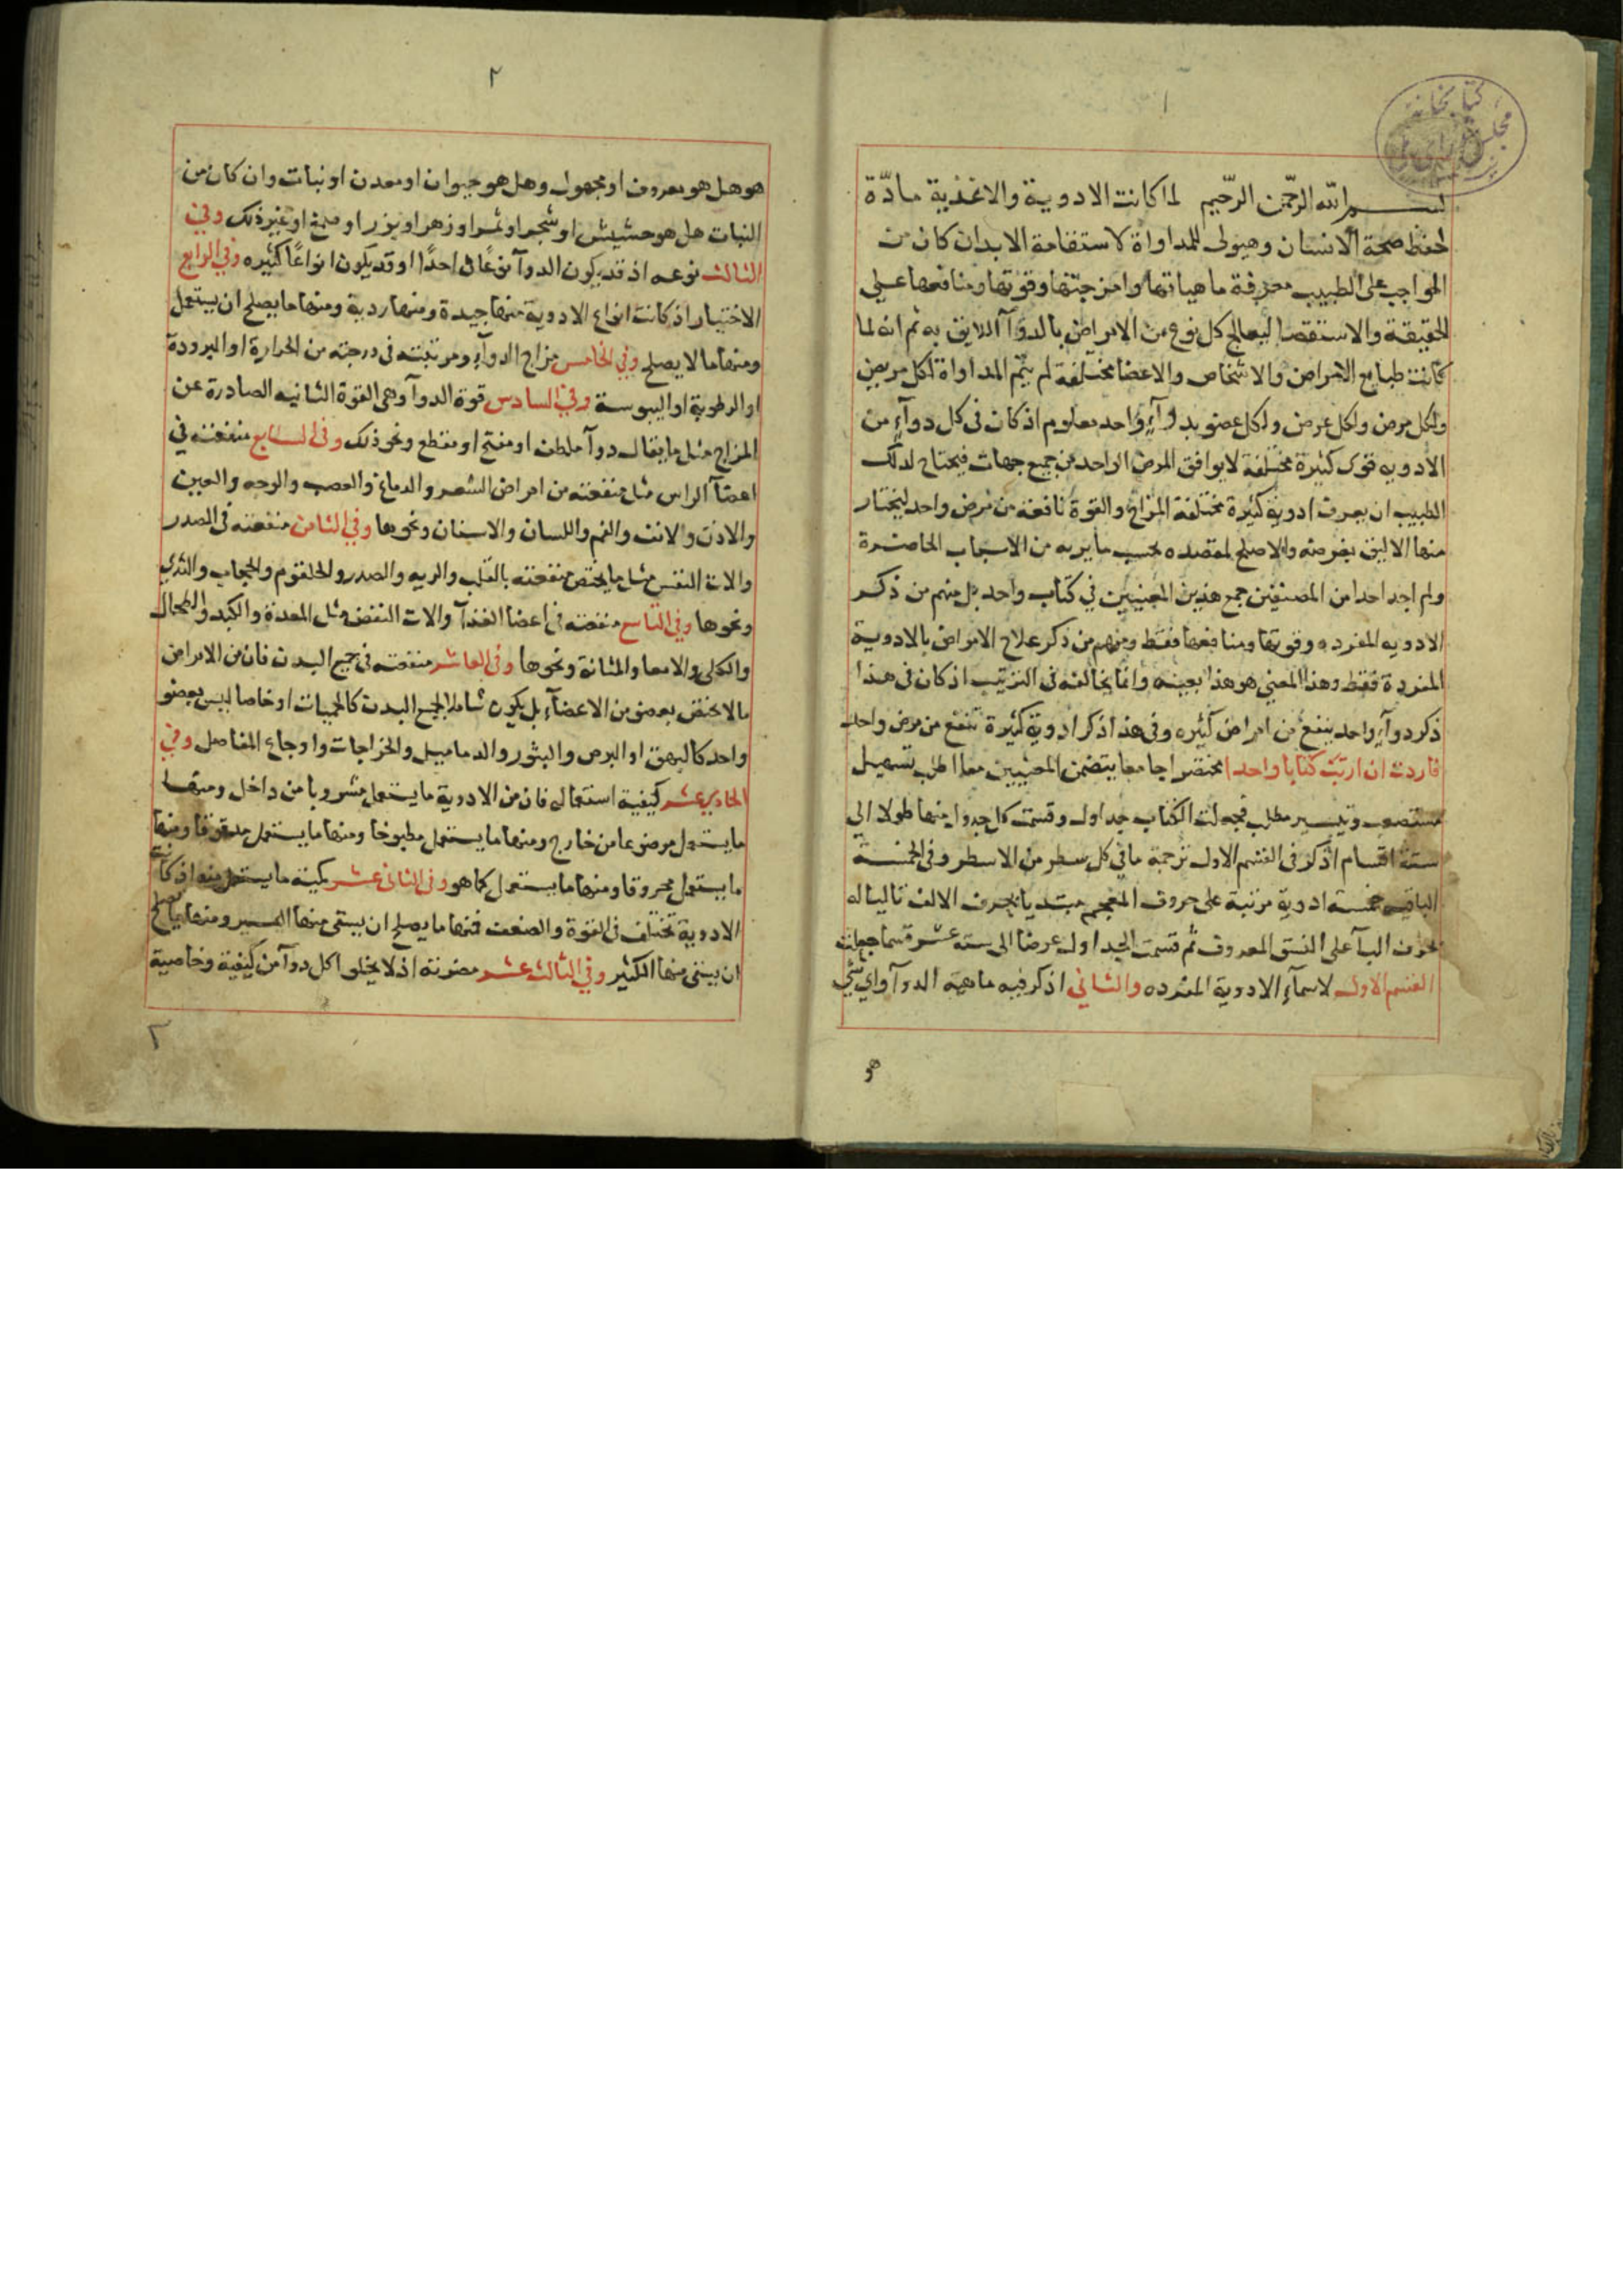 ١
كتابخانه
مجلس
بسم الله الرحمن الرحيم لما كانت الادوية والاغذية مادّة
لحفظ صحة الانسان وهيولى للمداواة لاستقامة الابدان كان من
الواجب على الطبيب معرفة ماهياتها وامزجتها وقوتها ومنافعها على
الحقيقة والاستقصا ليعالج كل نوع من الامراض بالدوآ اللايق به ثم انه لما
كانت طبايع الامراض والاشخاص والاعضا مختلفة لم يتم المداواة لكل مريض
ولكل مرض ولكل عرض ولكل عضو بدوآءٍ واحد معلوم اذ كان فى كل دوآءٍ من
الادويه قوى كثيرة مختلفة لا يوافق المرض الواحد من جميع جهات فيحتاج لذلك
الطبيب ان يعرف ادوية كثيرة مختلفة المزاج والقوة نافعة من مرض واحد ليختار
منها الاليق بغرضه والاصلح لمقصده بحسب ما يريه من الاسباب الحاضرة
ولم اجد احدا من المصنفين جمع هذين المعنيين في كتاب واحد بل منهم من ذكر
الادويه المفرده وقوتها ومنافعها فقط ومنهم من ذكر علاج الامراض بالادوية
المفردة فقط وهذا المعني هو هذا بعينه وانما يخالفه فى الترتيب اذ كان فى هذا
ذكر دوآءٍ واحد ينفع من امراض كثيره وفى هذا ذكر ادوية كثيرة تنفع من مرض واحد
فاردت ان ارتب كتابا واحدا مختصرا جامعا يتضمن المعنيين معا اطلب تسهيل
مستصعب وتيسير مطلب فجعلت الكتاب جداول وقسمت كل جدول منها طولا الى
ستة اقسام اذكر فى القسم الاول ترجمة ما في كل سطر من الاسطر وفى الخمسة
الباقيه خمسة ادوية مرتبة على حروف المعجم مبتديا بحرف الالف تاليا له
بحرف البآ على النسق المعروف ثم قسمت الجداول عرضا الى ستة عشر قسما جعلت
القسم الاول لاسمآءِ الادوية المفرده والثاني اذكر فيه ماهية الدوآ واي شي
هو
٢
هو هل هو معروف او مجهول وهل هو حيوان او معدن او نبات وان كان من
النبات هل هو حشيش او شجر او ثمر او زهر او بزر او صمغ او غير ذلك وفي
الثالث نوعه اذ قد يكون الدوآ نوعًا واحدًا او قد يكون انواعًا كثيره وفي الرابع
الاختيار اذ كانت انواع الادوية منها جيدة ومنها ردية ومنها ما يصلح ان يستعمل
ومنها ما لا يصلح وفي الخامس مزاج الدوآءِ ومرتبته فى درجته من الحرارة او البرودة
او الرطوبة او اليبوسة وفى السادس قوة الدوآ وهى القوة الثانيه الصادرة عن
المزاج مثل ما يقال دوآ ملطف او مفتح او مقطع ونحو ذلك وفى السابع منفعته في
اعضآ الراس مثل منفعته من امراض الشعر والدماغ والعصب والوجه والعين
والاذن والانف والفم واللسان والاسنان ونحوها وفي الثامن منفعته فى الصدر
والات النفس مثل ما يختص منفعته بالقلب والريه والصدر والحلقوم والحجاب والثدي
ونحوها وفي التاسع منفعته فى اعضا الغذآ والات النفض مثل المعدة والكبد والطحال
والكلى والامعا والمثانة ونحوها وفى العاشر منفعته فى جميع البدن فان من الامراض
ما لا يختص بعضو من الاعضآءِ بل يكون شاملا لجميع البدن كالحميات او خاصا ليس بعضو
واحد كالبهق او البرص والبثور والدماميل والخراجات واوجاع المفاصل وفي
الحادي عشر كيفية استعماله فان من الادوية ما يستعمل مشروبا من داخل ومنها
ما يستعمل موضوعا من خارج ومنها ما يستعمل مطبوخا ومنها ما يستعمل مدقوقا ومنها
ما يستعمل محروقا ومنها ما يستعمل كما هو وفى الثانى عشر كمية ما يستعمل منه اذ كانت
الادوية تختلف فى القوة والضعف فمنها ما يصلح ان يسقى منها اليسير ومنها ما يصلح
ان يسقى منها الكثير وفي الثالث عشر مضرته اذ لا يخلو اكل دوآ من كيفية وخاصية
٢